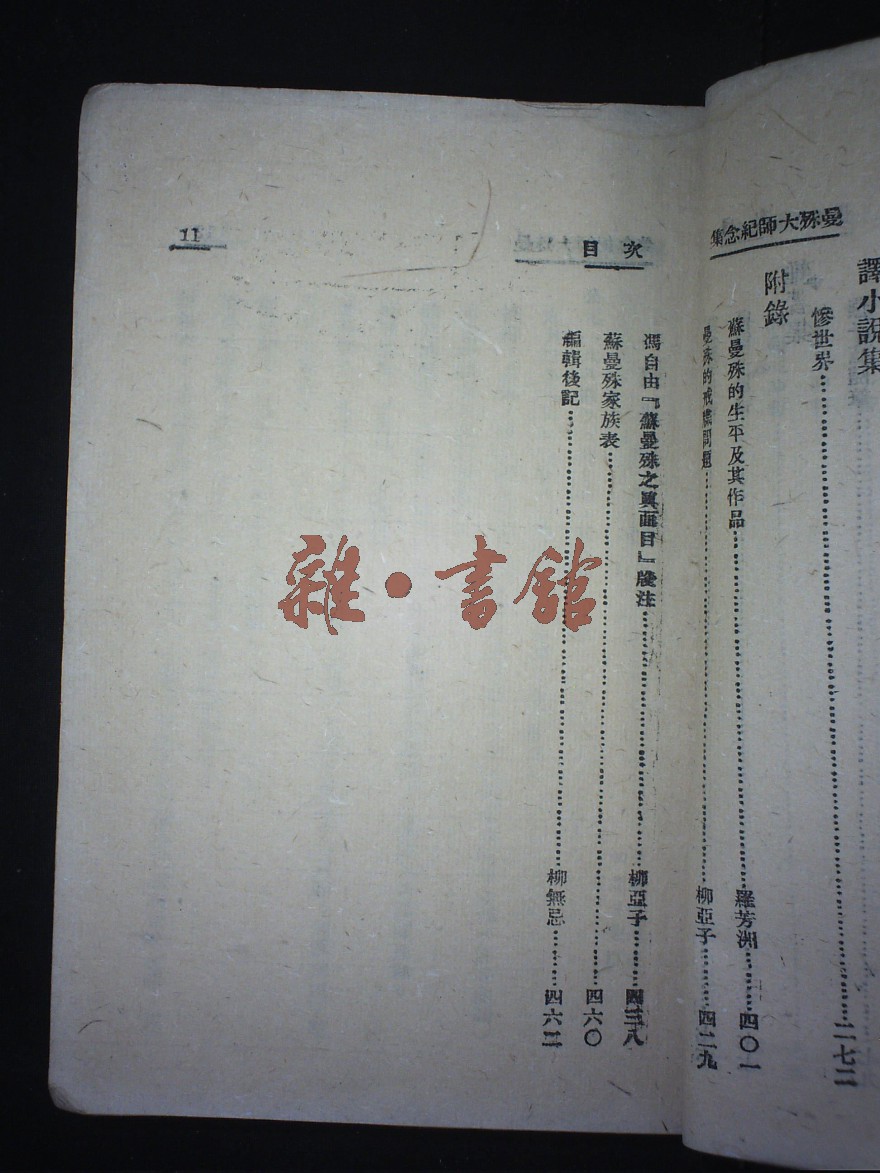 曼殊大師紀念集
譯小說集
慘世界……二七二
附錄
蘇曼殊的生平及其作品……羅芳洲……四〇一
曼殊的戒牒問題……柳亞子……四二九
目次
11
馮自由『蘇曼殊之眞面目』箋注……柳亞子……四三八
蘇曼殊家族表……四六〇
編輯後記……柳無忌……四六二
雜·書館